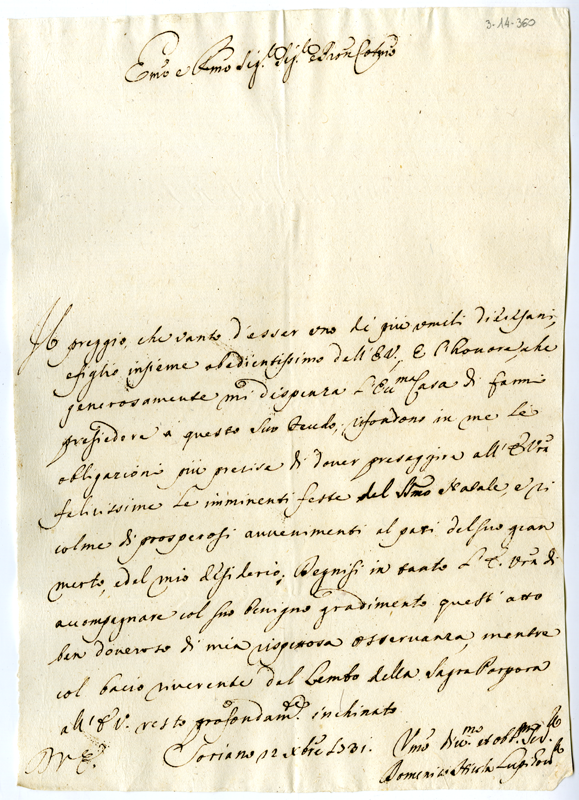 3-14-360
Em̃o e Rm̃o Sig.re Sig.re Pron Col.mo
Il preggio, che vanto d'esser uno di più umili diocesani,
e figlio insieme obedientissimo dell'E.V., e l'honore, che
generosamente mi dispenza l'Ecc.ma Casa di farmi
presiedere a questo suo feudo, rifondono in me le
obligazioni più precise di dover presaggire all'E. Vrã
felicissime le imminenti feste del Sṫmo Natale e ri
colme di prosperosi avvenimenti al pari del suo gran
merto, e del mio desiderio; Degnisi in tanto l'E. Vrã di
accompagnare col suo benigno gradimento questi atto
ben doveroso di mia rispettosa osservanza, mentre
col bacio riverente del Lembo della Sagra Porpora
all'E.V. resto profondam.te inchinato
Soriano 12 Xbre 1731.
Umo Div.mo et obl.mo Ser.re
Domenico